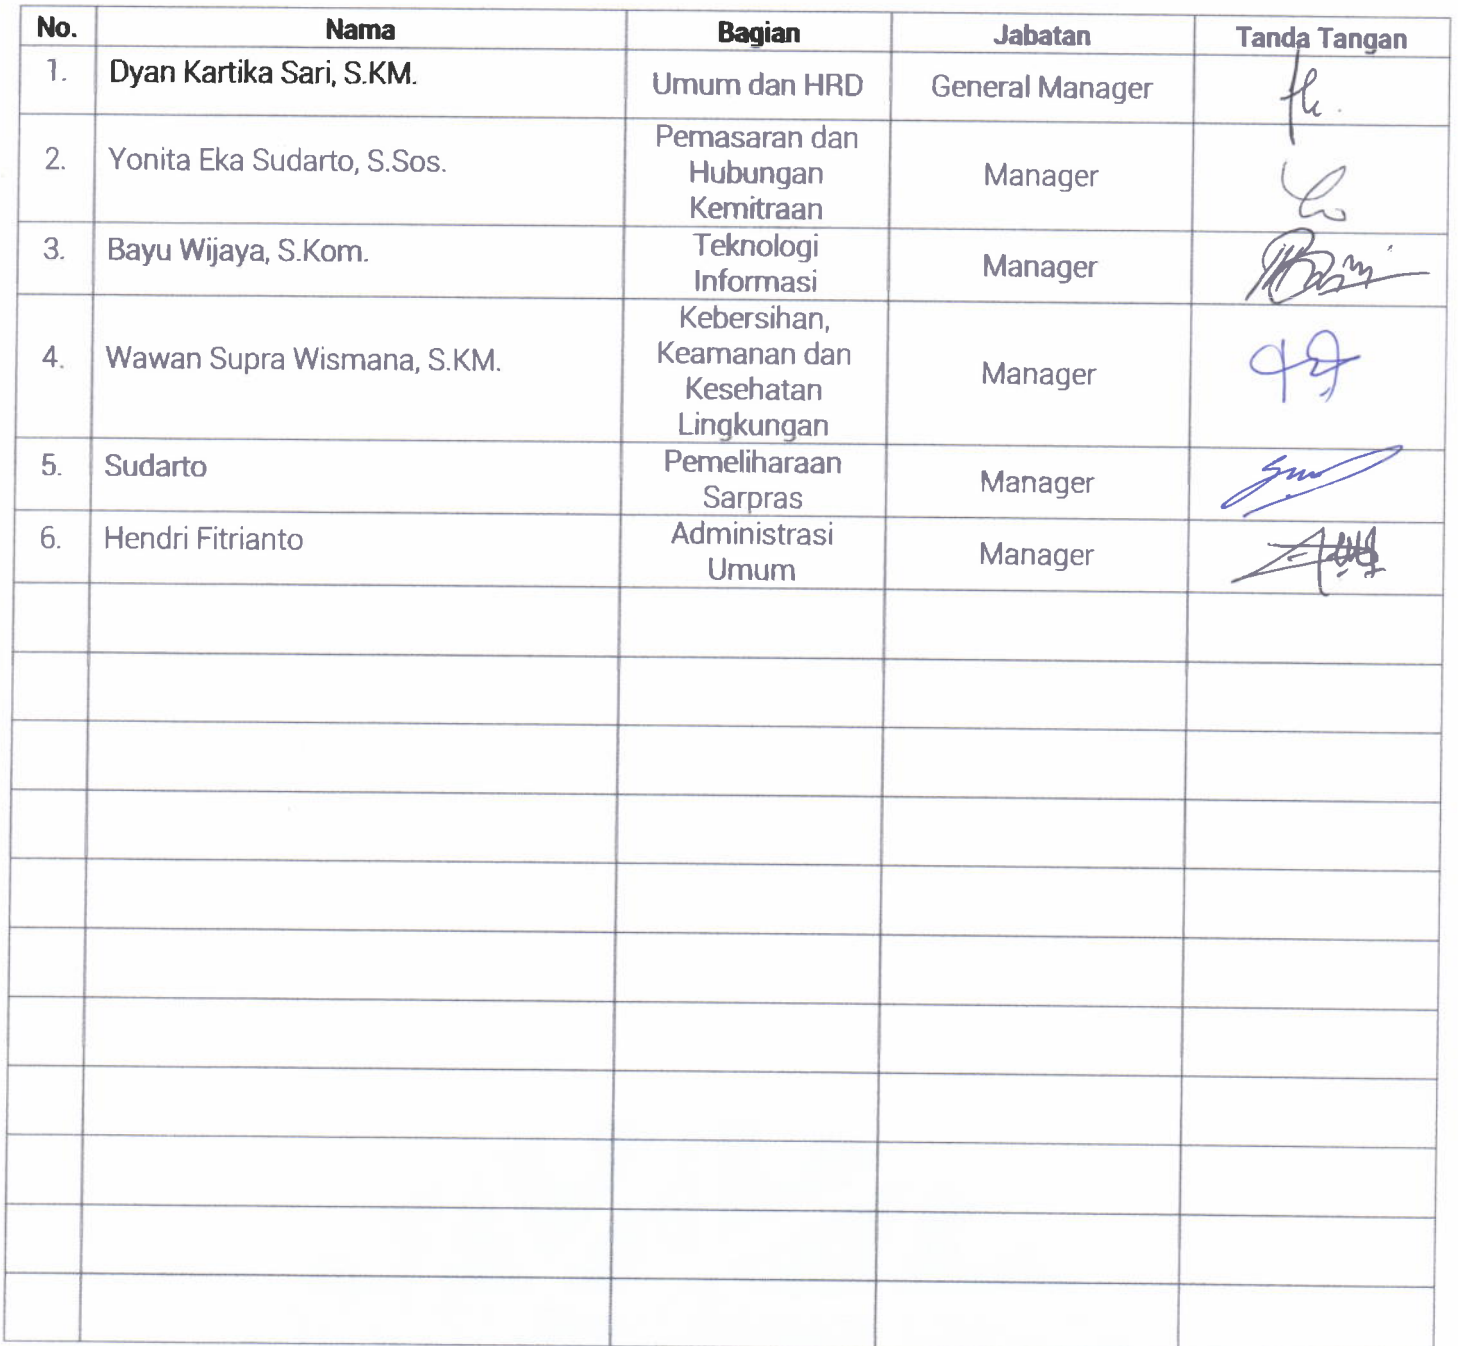 No. Nama Bagian Jabatan Tanda Tangan
1. Dyan Kartika Sari, S.KM. Umum dan HRD General Manager
2. Yonita Eka Sudarto, S.Sos. Pemasaran dan
Hubungan
Kemitraan Manager
3. Bayu Wijaya, S.Kom. Teknologi
Informasi Manager
4. Wawan Supra Wismana, S.KM. Kebersihan,
Keamanan dan
Kesehatan
Lingkungan Manager
5. Sudarto Pemeliharaan
Sarpras Manager
6. Hendri Fitrianto Administrasi
Umum Manager